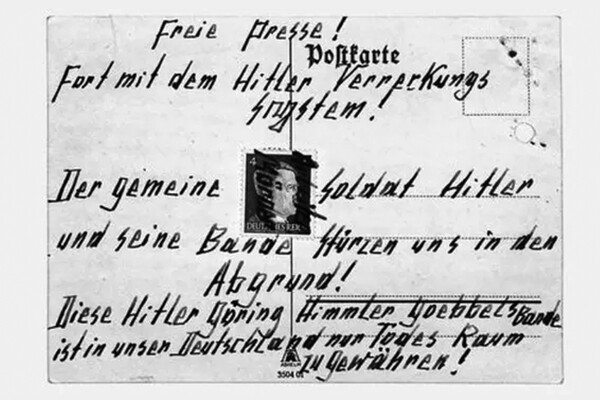 Freie Presse!
Postkarte
Fort mit dem Hitler Verreckungs
System.
4
DEUTSCHES REICH
Der gemeine Soldat Hitler
und seine Bande stürzen uns in den
Abgrund!
Diese Hitler Göring Himmler Goebbels Bande
ist in unser Deutschland nur Todes Raum
zu gewähren!
3504 01